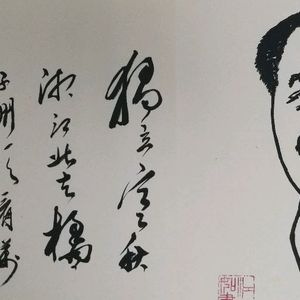 獨立寒秋
湘江北去橘
子洲頭看萬